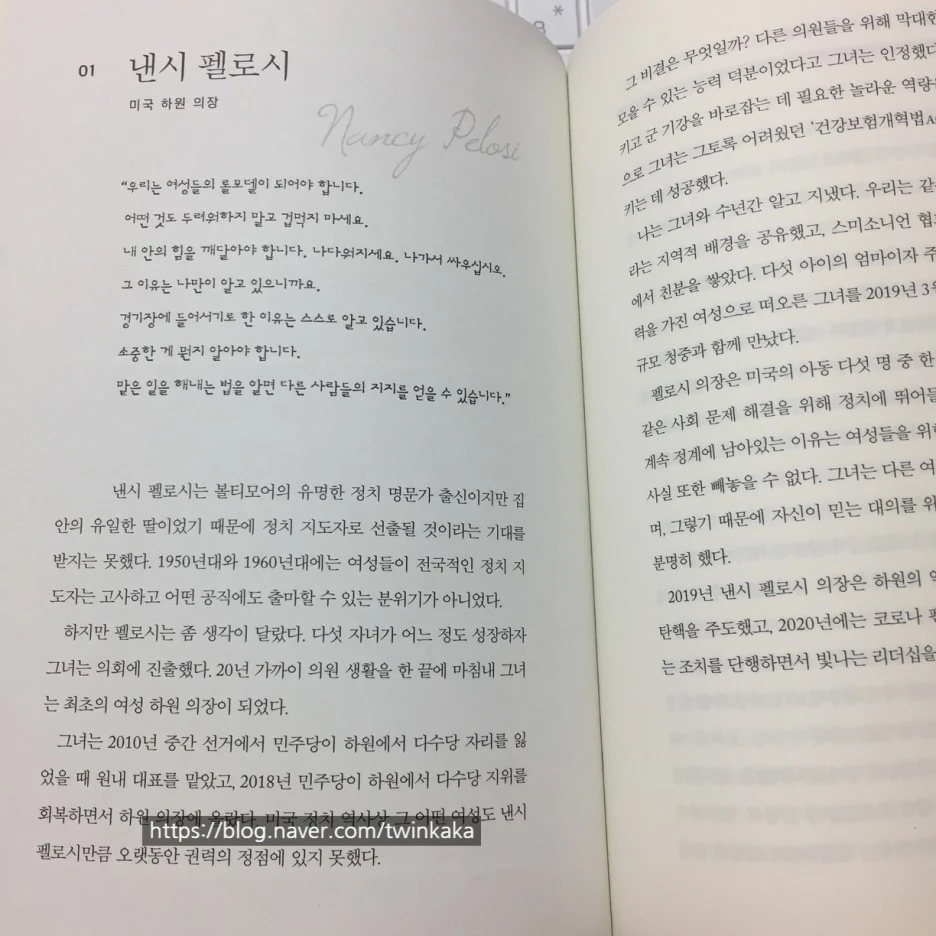 01 낸시 펠로시
미국 하원 의장
Nancy Pelosi
“우리는 여성들의 롤모델이 되어야 합니다.
어떤 것도 두려워하지 말고 겁먹지 마세요.
내 안의 힘을 깨달아야 합니다. 나다워지세요. 나가서 싸우십시오.
그 이유는 나만이 알고 있으니까요.
경기장에 들어서기로 한 이유는 스스로 알고 있습니다.
소중한 게 뭔지 알아야 합니다.
맡은 일을 해내는 법을 알면 다른 사람들의 지지를 얻을 수 있습니다.”
낸시 펠로시는 볼티모어의 유명한 정치 명문가 출신이지만 집
안의 유일한 딸이었기 때문에 정치 지도자로 선출될 것이라는 기대를
받지는 못했다. 1950년대와 1960년대에는 여성들이 전국적인 정치 지
도자는 고사하고 어떤 공직에도 출마할 수 있는 분위기가 아니었다.
하지만 펠로시는 좀 생각이 달랐다. 다섯 자녀가 어느 정도 성장하자
그녀는 의회에 진출했다. 20년 가까이 의원 생활을 한 끝에 마침내 그녀
는 최초의 여성 하원 의장이 되었다.
그녀는 2010년 중간 선거에서 민주당이 하원에서 다수당 자리를 잃
었을 때 원내 대표를 맡았고, 2018년 민주당이 하원에서 다수당 지위를
회복하면서 하원 의장에 올랐다. 미국 정치 역사상 그 어떤 여성도 낸시
펠로시만큼 오랫동안 권력의 정점에 있지 못했다.
https://blog.naver.com/twinkaka
그 비결은 무엇일까? 다른 의원들을 위해 막대한
모을 수 있는 능력 덕분이었다고 그녀는 인정했다
키고 군 기강을 바로잡는 데 필요한 놀라운 역량을
으로 그녀는 그토록 어려웠던 ‘건강보험개혁법
키는 데 성공했다.
나는 그녀와 수년간 알고 지냈다. 우리는 같은
라는 지역적 배경을 공유했고, 스미소니언 협
에서 친분을 쌓았다. 다섯 아이의 엄마이자 주
력을 가진 여성으로 떠오른 그녀를 2019년 3월
규모 청중과 함께 만났다.
펠로시 의장은 미국의 아동 다섯 명 중 한
같은 사회 문제 해결을 위해 정치에 뛰어들
계속 정계에 남아있는 이유는 여성들을 위해
사실 또한 빼놓을 수 없다. 그녀는 다른 여
며, 그렇기 때문에 자신이 믿는 대의를 위
분명히 했다.
2019년 낸시 펠로시 의장은 하원의 역
탄핵을 주도했고, 2020년에는 코로나 팬
는 조치를 단행하면서 빛나는 리더십을